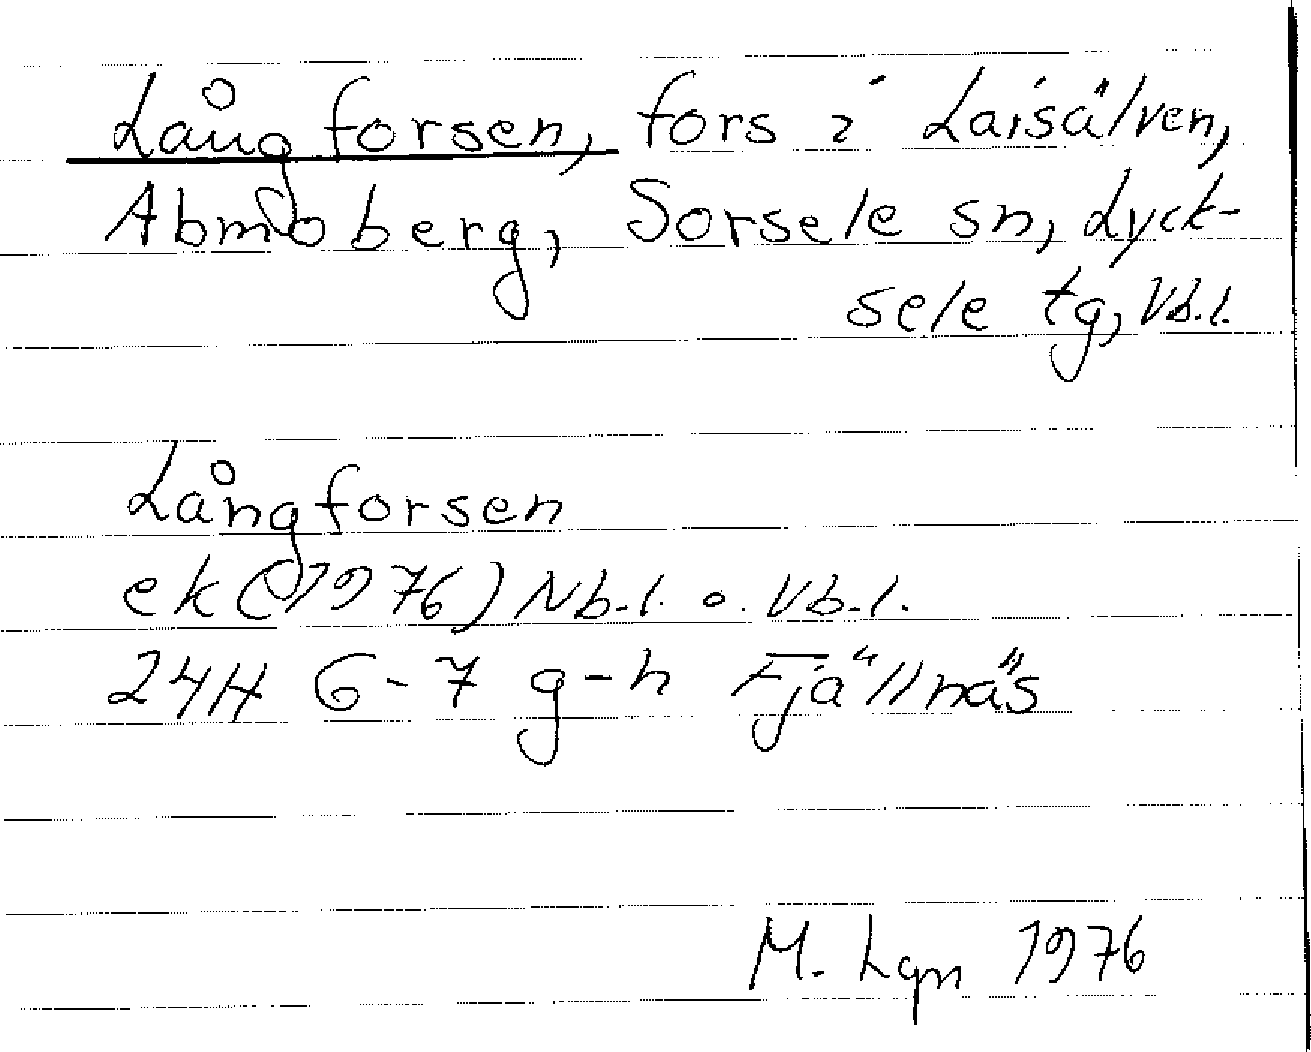 Långforsen, fors i Laisälven,
Abmoberg, Sorsele sn, Lyck-
sele tg, Vb.l.
Långforsen
ek (1976) Nb.l. o. Vb.l.
24H 6-7 g-h Fjällnäs
M. Lgn 1976